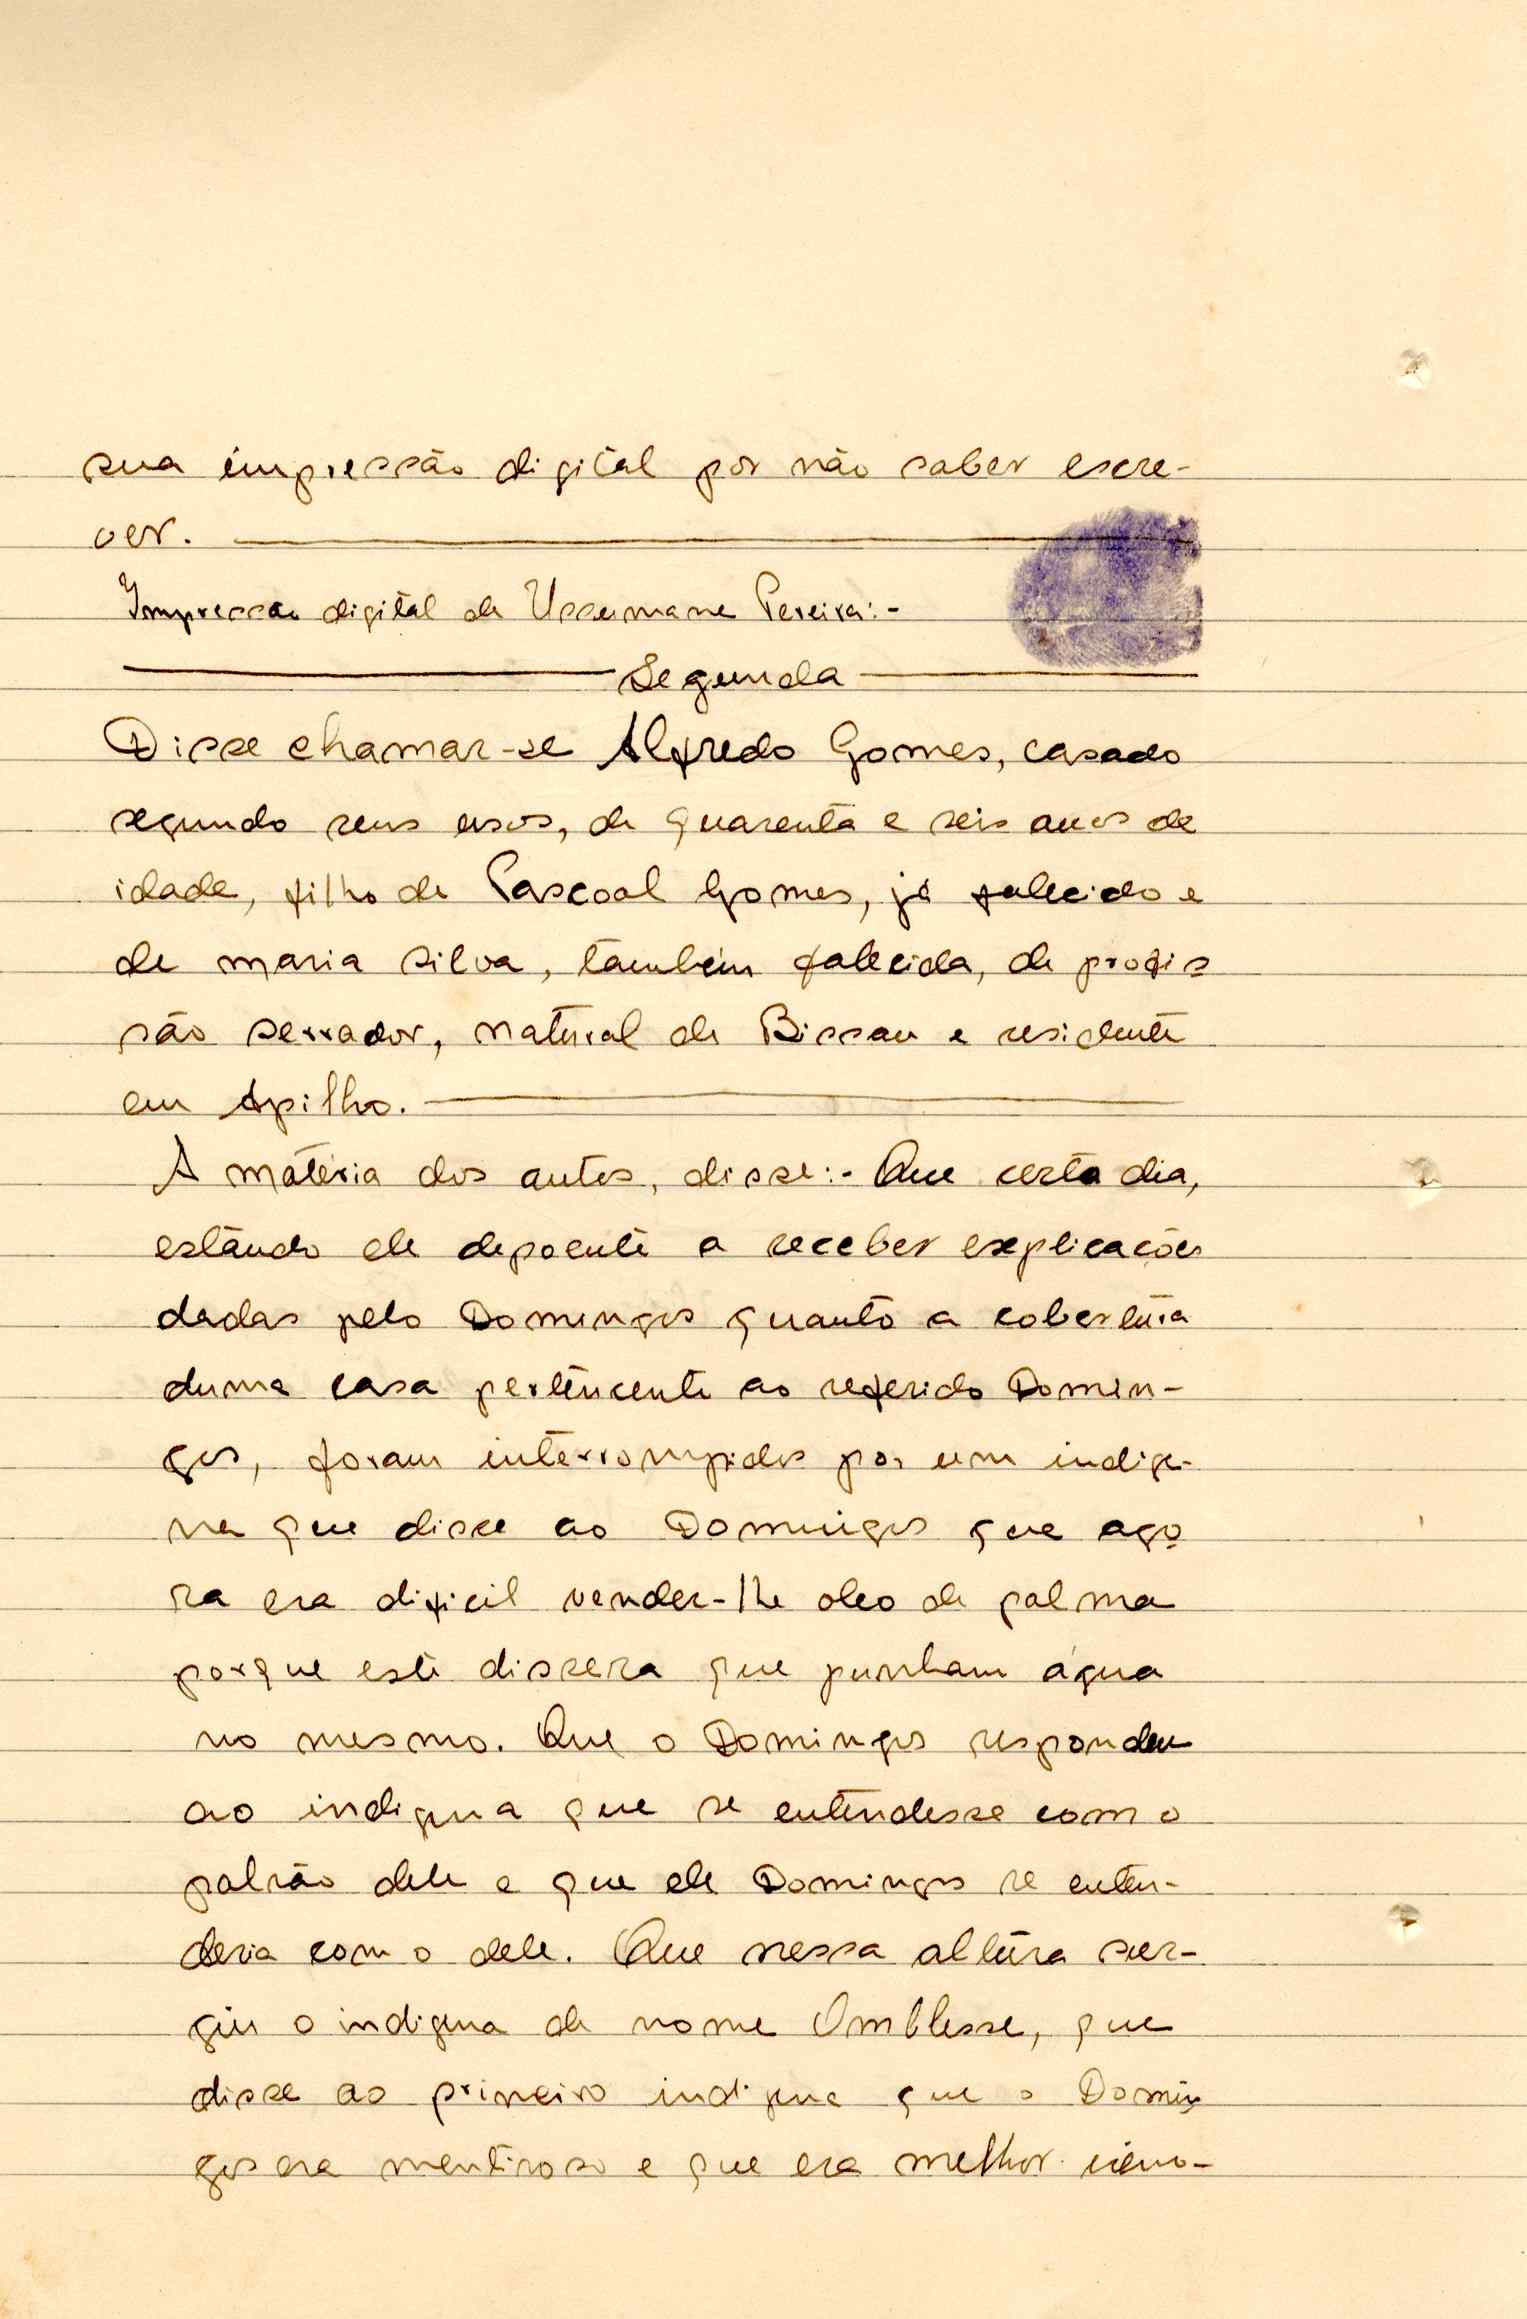 sua impressão digital por não saber escre-
ver.
Impressão digital de Ussumane Pereira:-
Segunda
Disse chamar-se Alfredo Gomes, casado
segundo seus usos, de quarenta e seis anos de
idade, filho de Pascoal Gomes, já falecido e
de maria Silva, também falecida, de profis
são serrador, natural de Bissau e residente
em Apilho.
A matéria dos autos, disse:- Que certo dia,
estando ele depoente a receber explicações
dadas pelo Domingos quanto a cobertura
duma casa pertencente ao referido Domin-
gos, foram interrompidos por um indige-
na que disse ao Domingos que ago
ra era dificil vender-lhe oleo de palma
porque este dissera que punham água
no mesmo. Que o Domingos respondeu
ao indigena que se entendesse com o
patrão dele e que ele Domingos se enten-
deria com o dele. Que nessa altura sur-
giu o indigena de nome Omblesse, que
disse ao primeiro indigena que o Domin
gos era mentiroso e que era melhor